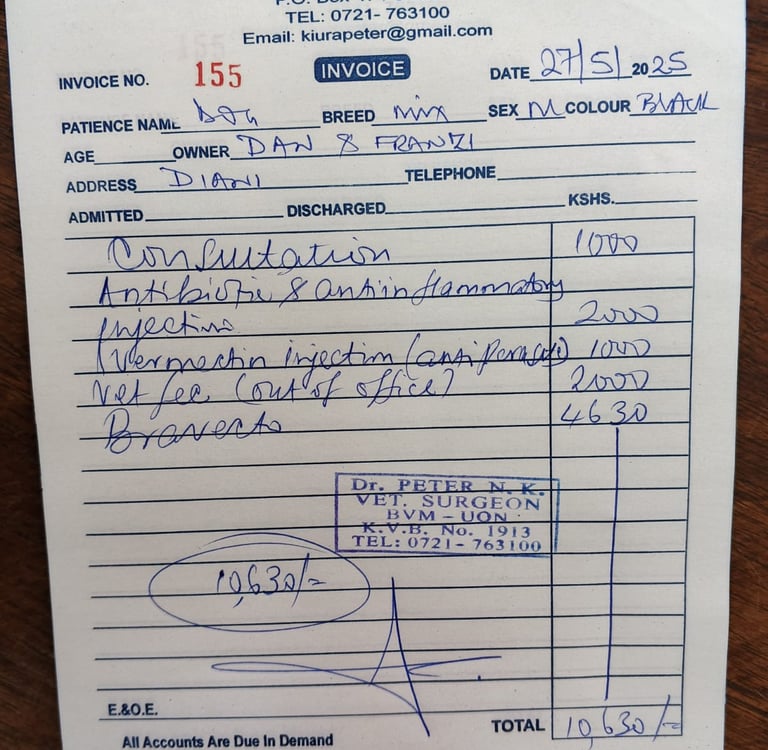 TEL: 0721- 763100
Email: kiurapeter@gmail.com
INVOICE NO. 155 INVOICE DATE 27/5/ 2025
PATIENCE NAME Dog BREED mix SEX M COLOUR BLACK
AGE OWNER DAN & FRANZI
ADDRESS DIANI TELEPHONE
ADMITTED DISCHARGED KSHS.
Consultation 1000
Antibiotic & antiinflammatory
injection 2000
Ivermectin injection (antiparasite) 1000
Vet fee (out of office) 2000
Bravecto 4630
Dr. PETER N. K.
VET. SURGEON
BVM - UON
K.V.B. No. 1913
TEL: 0721- 763100
10,630/=
E.&O.E.
TOTAL 10,630/=
All Accounts Are Due In Demand